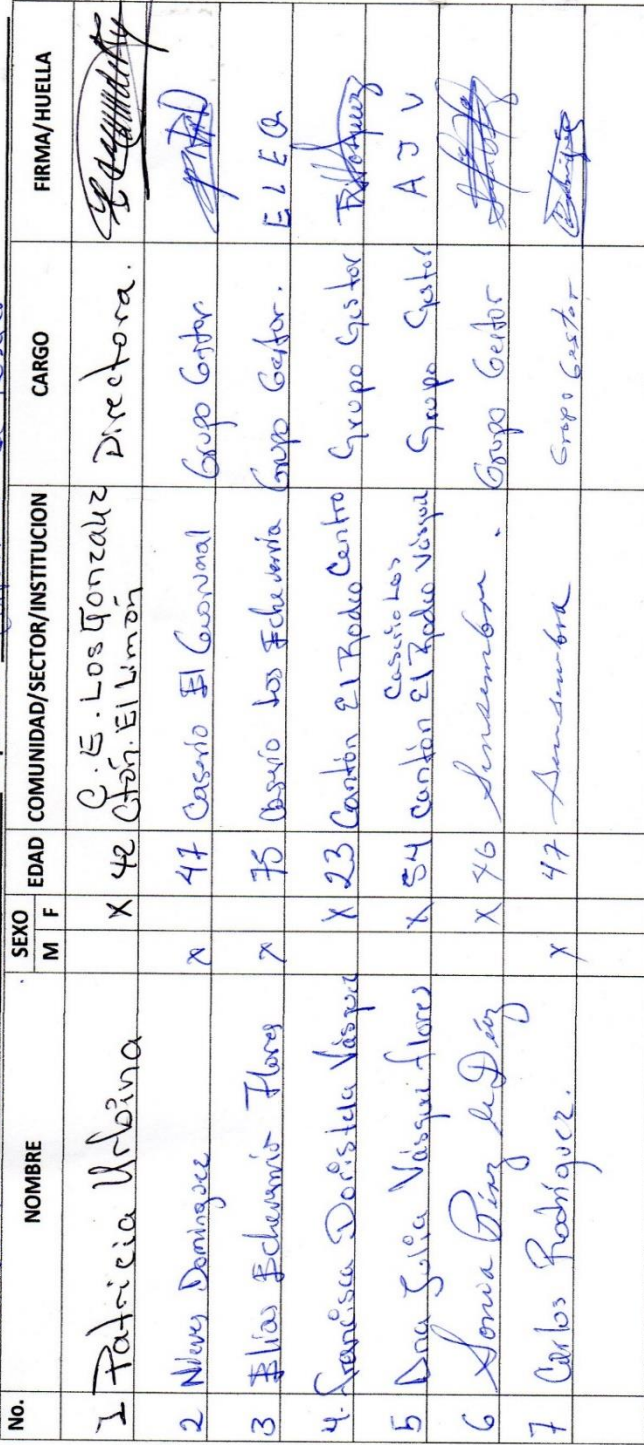 No. NOMBRE SEXO M F EDAD COMUNIDAD/SECTOR/INSTITUCION CARGO FIRMA/HUELLA
1 Patricia Urbina X 42 C.E. Los Gonzalez Ctón. El Limón Directora.
2 Nieves Dominguez x 47 Caserio El Grupo Gestor
3 Elías Echeverría Flores x 75 Caserío Los Echeverría Grupo Gestor. E L E Q
4. Francisca Doristela Vásquez X 23 Cantón El Rodeo Centro Grupo Gestor
5 Ana Julia Vásquez flores X 54 Caserio Los Cantón El Rodeo Vásquez Grupo Gestor A J V
6 Sonia de X 46 Sensembra. Grupo Gestor
7 Carlos Rodríguez. x 47 Sensembra Grupo Gestor